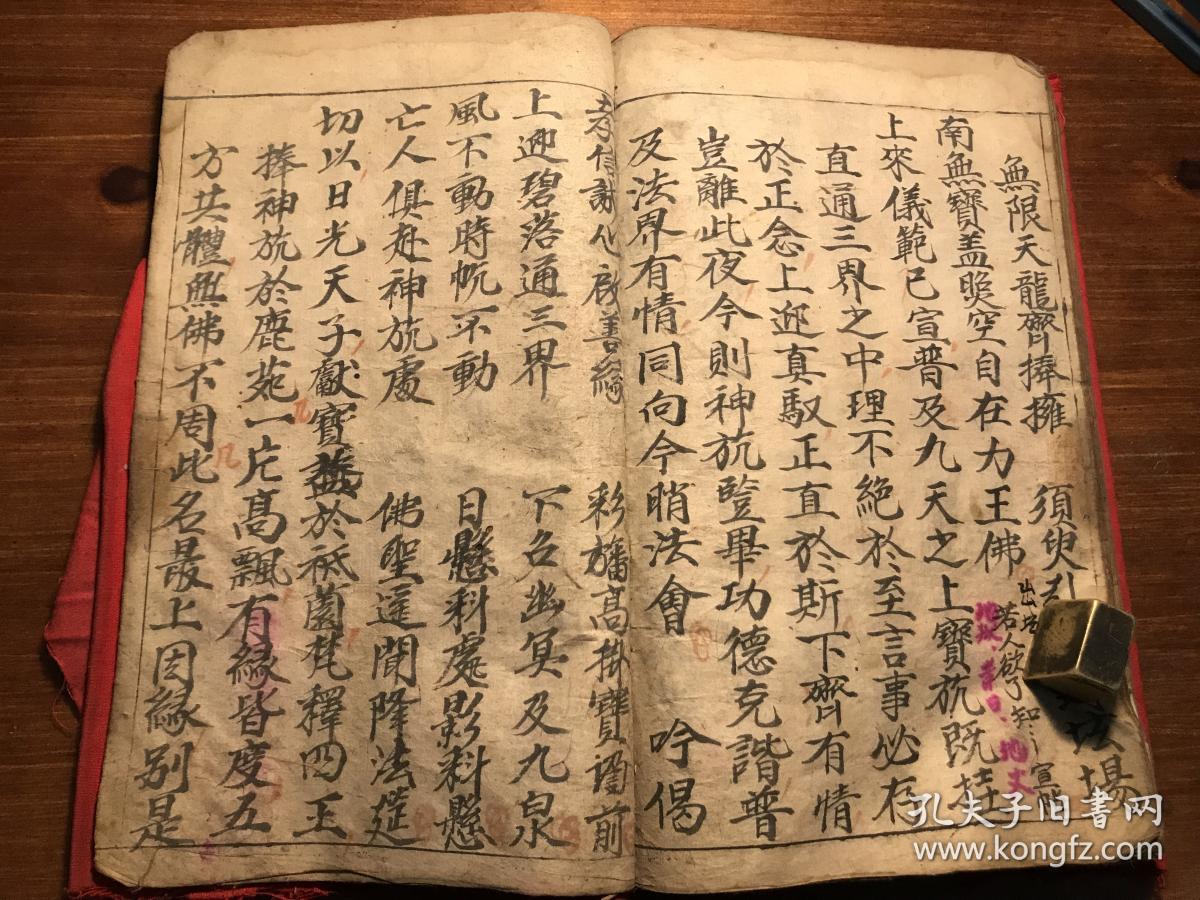 無限天龍齊捧擁 須臾 法場
南無寶盖熙空自在力王佛
若人欲了知
上來儀範已宣普及九天之上寶旒既挂
直通三界之中理不絶於至言事必存
於正念上迎真馭正直於斯下齊有情
豈離此夜今則神旒豎畢功德克諧普
及法界有情同向今晴法會 吟偈
孝信謝 啟善緣 彩旛高掛寶 前
上迎碧落通三界 下名幽冥及九泉
風不動時 不動 日懸科處影科懸
亡人俱赴神旒處 佛聖遥聞降法筵
切以日光天子獻寶盖於祇園梵釋四王
捧神旒於鹿苑一片高飄有緣皆度五
方共體無佛不周此名最上因緣别是
孔夫子旧书网
www.kongfz.com